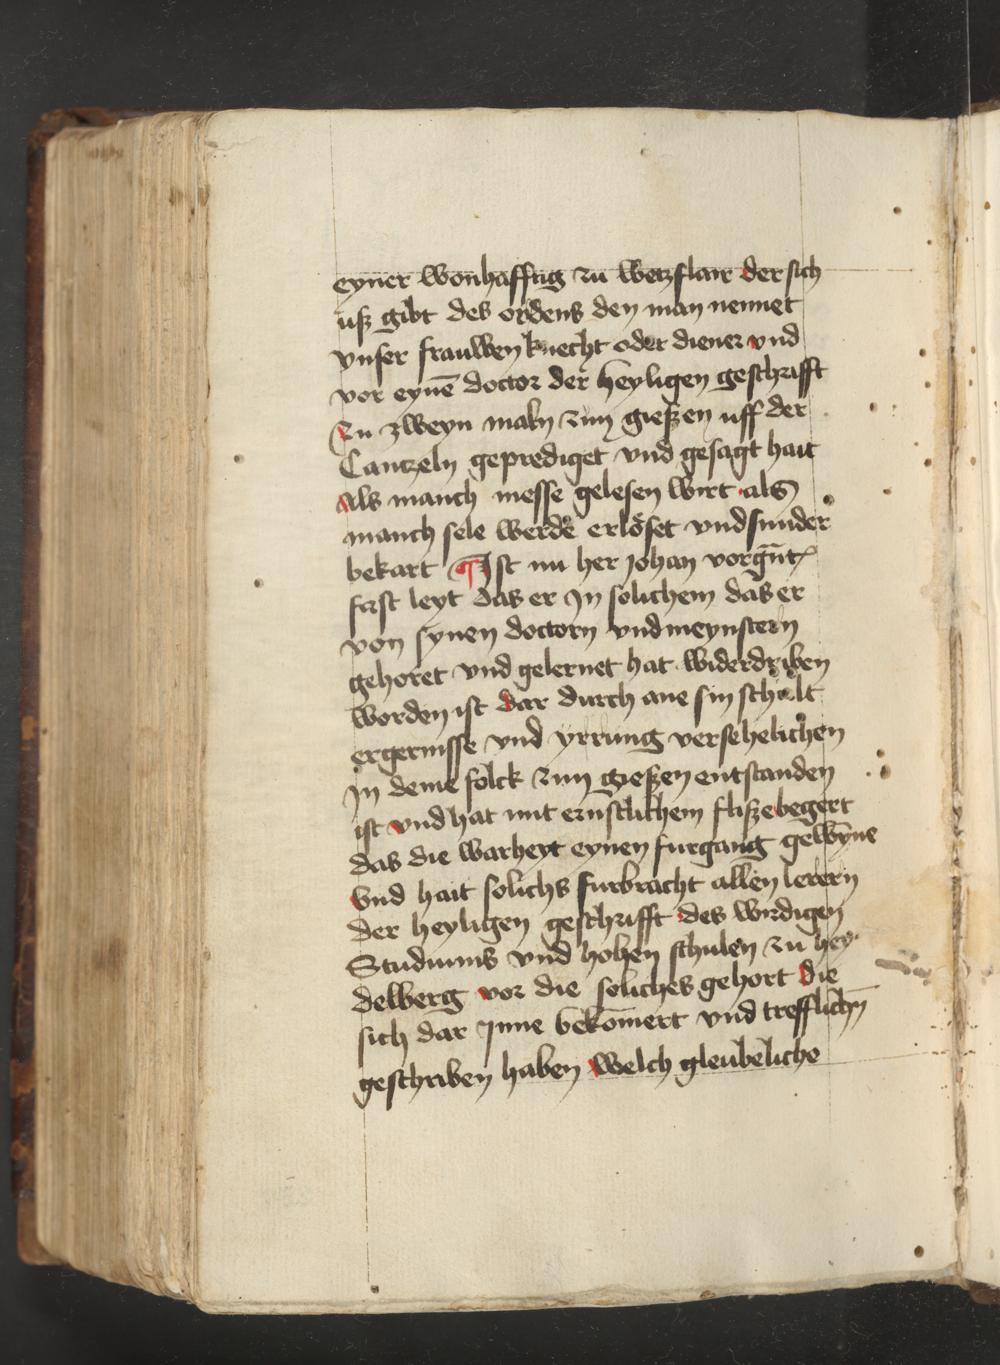 eyner wonhafftig zu wetzflair der sich
uß gibt des ordens den man nennet
vnser frauwen knecht oder diener vnd
vor eynē doctor der heyligen geschrifft
zu zweyn maln zun gießen uff der
Cantzeln geprediget vnd gesagt hait
Als manch messe gelesen wirt als
manch sele werde erlöset vnd sunder
bekart Ist nu her Johan
fast leyt das er In solichem das er
von synen doctorn vnd meynstern
gehoret vnd gelernet hat widerdriben
worden ist dar durch ane sin schult
ergernisse vnd yrrung versehelichen
In deme folck zun gießen entstanden
ist vnd hat mit ernstlichem fliße begert
das die warheyt eynen furgang gewyne
Vnd hait solichs furbracht allen lerern
der heyligen geschrifft des wirdigen
Studiums vnd hohen schulen zu hey
delberg vor die soliches gehort die
sich dar Inne bekōmert vnd trefflichn̄
geschriben haben welch gleubeliche